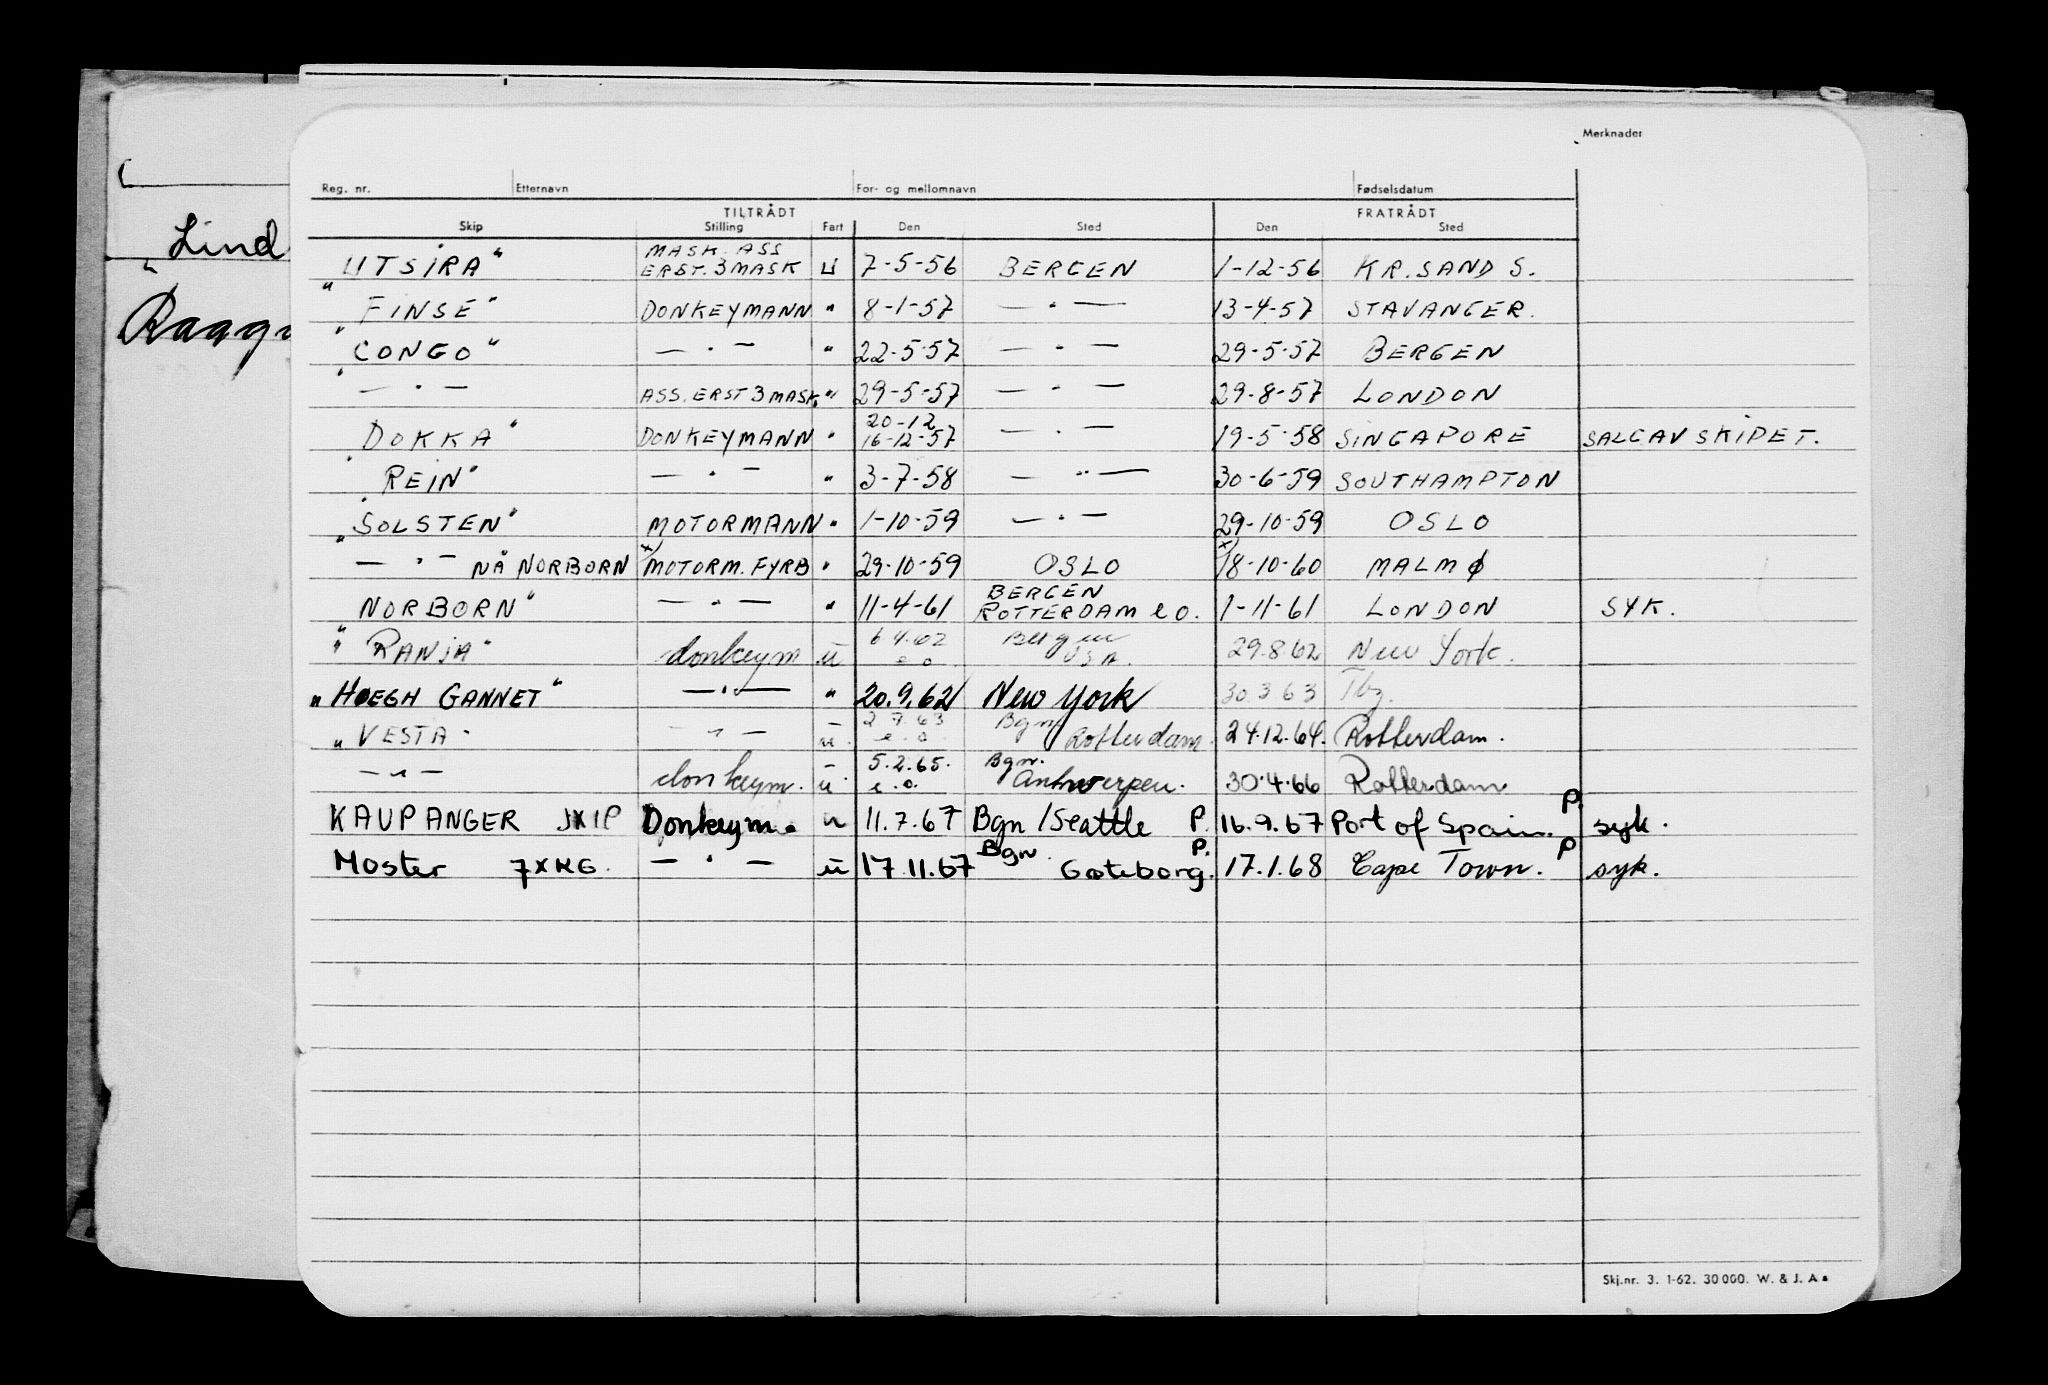 Merknader
Reg. nr. Etternavn For- og mellomnavn Fødselsdatum
TILTRÅDT FRATRÅDT
Skip Stilling Fart Den Sted Den Sted
Lind
MASK. ASS
"UTSIRA" ERST. 3 MASK U 7-5-56 BERGEN 1-12-56 KR. SAND S.
"FINSE" DONKEYMANN " 8-1-57 — " — 13-4-57 STAVANGER.
"CONGO" — " — " 22-5-57 — " — 29-5-57 BERGEN
— " — ASS. ERST 3 MASK. " 29-5-57 — " — 29-8-57 LONDON
20-12
"DOKKA" DONKEYMANN " 16-12-57 — " — 19-5-58 SINGAPORE SALG AV SKIPET.
"REIN" — " — " 3-7-58 — " — 30-6-59 SOUTHAMPTON
"SOLSTEN" MOTORMANN " 1-10-59 — " — 29-10-59 OSLO
— " — NÅ NORBORN x) MOTORM. FYRB " 29-10-59 OSLO x) 18-10-60 MALMØ
BERGEN
"NORBORN" — " — " 11-4-61 ROTTERDAM e o. 1-11-61 LONDON SYK.
6 4.62 Bergen
"RANJA" donkeym u e o USA. 29.8.62 New York.
"HØEGH GANNET" — " — " 20.9.62 New York 30.3 63 Tbg.
2 7.63 Bgn
"VESTA" — " — u. e. o. Rotterdam. 24.12.64. Rotterdam.
5.2.65. Bgn.
— " — donkeym. u e. o. Antwerpen. 30.4.66 Rotterdam
KAUPANGER JXIP Donkeym. u 11.7.67 Bgn / Seattle P. 16.9.67 Port of Spain. P. syk.
Bgn P. P
Moster 7XKG. — " — u 17.11.67 Gøteborg. 17.1.68 Cape Town. syk.
Skj.nr. 3. 1-62. 30 000. W. & J. A s